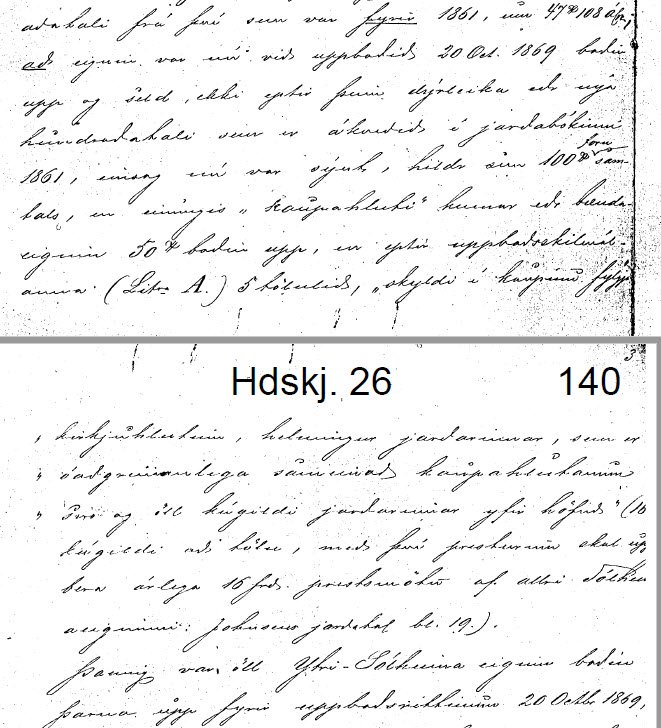 datali frá því sem var fyrir 1861, um 47 108 ál.;
að eignin var nú við uppboðið 20 Oct. 1869 boðin
upp og seld, ekki eptir þeim dýrleika eða nýja
hundraðatali sem er ákveðið í jarðabókinni
1861, einsog nú var sýnt, heldr sem 100 forn sam-
tals, en einúngis „kaupahluti" hennar eða bænda-
eignin 50 boðin upp, en eptir uppboðsskilmál-
anna (Litr A.) 5 tölulið, „skyldi í kaupinu fylgja
3
Hdskj. 26 140
„ kirkjuhlutinn, helmingur jarðarinnar, sem er
„ óaðgreinanlega sameinað kaupahlutanum
„ og öll kúgildi jarðarinnar yfir höfuð" (10
kúgildi að tölu, með því presturinn skal upp
bera árlega 16 frd. prestsmötu af allri Sólheima
eigninni: Johnsens jarðatal bl. 19.).
Þannig var öll Ytri-Sólheima eignin boðin
þarna upp fyrir uppboðsréttinum 20 Octbr 1869,